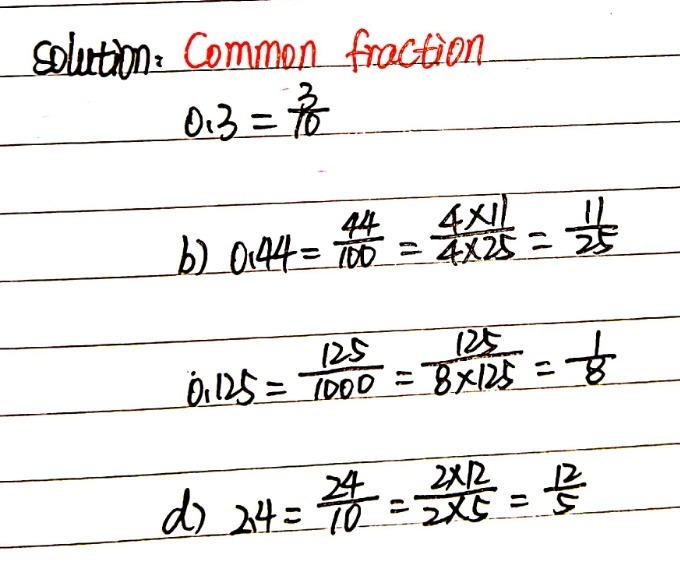 solution: Common fraction
0.3 = 3/10
b) 0.44 = 44/100 = 4×11/4×25 = 11/25
0.125 = 125/1000 = 125/8×125 = 1/8
d) 2.4 = 24/10 = 2×12/2×5 = 12/5